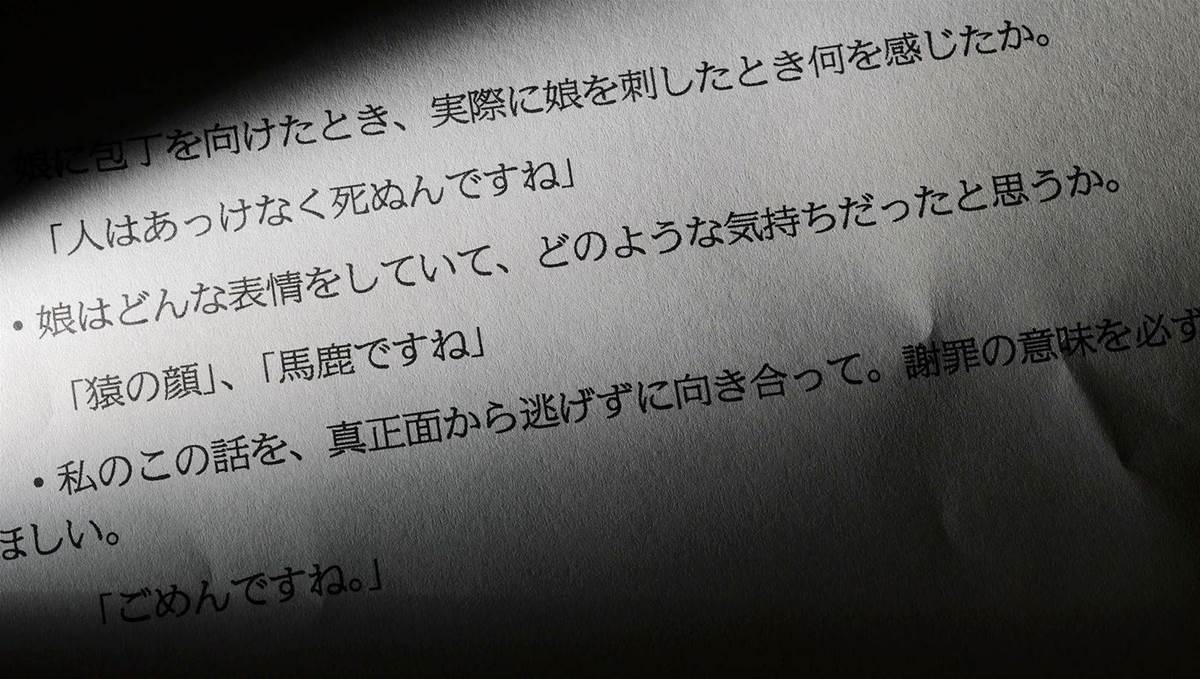 娘に包丁を向けたとき、実際に娘を刺したとき何を感じたか。
「人はあっけなく死ぬんですね」
・娘はどんな表情をしていて、どのような気持ちだったと思うか。
「猿の顔」、「馬鹿ですね」
・私のこの話を、真正面から逃げずに向き合って。謝罪の意味を必ず
ほしい。
「ごめんですね。」